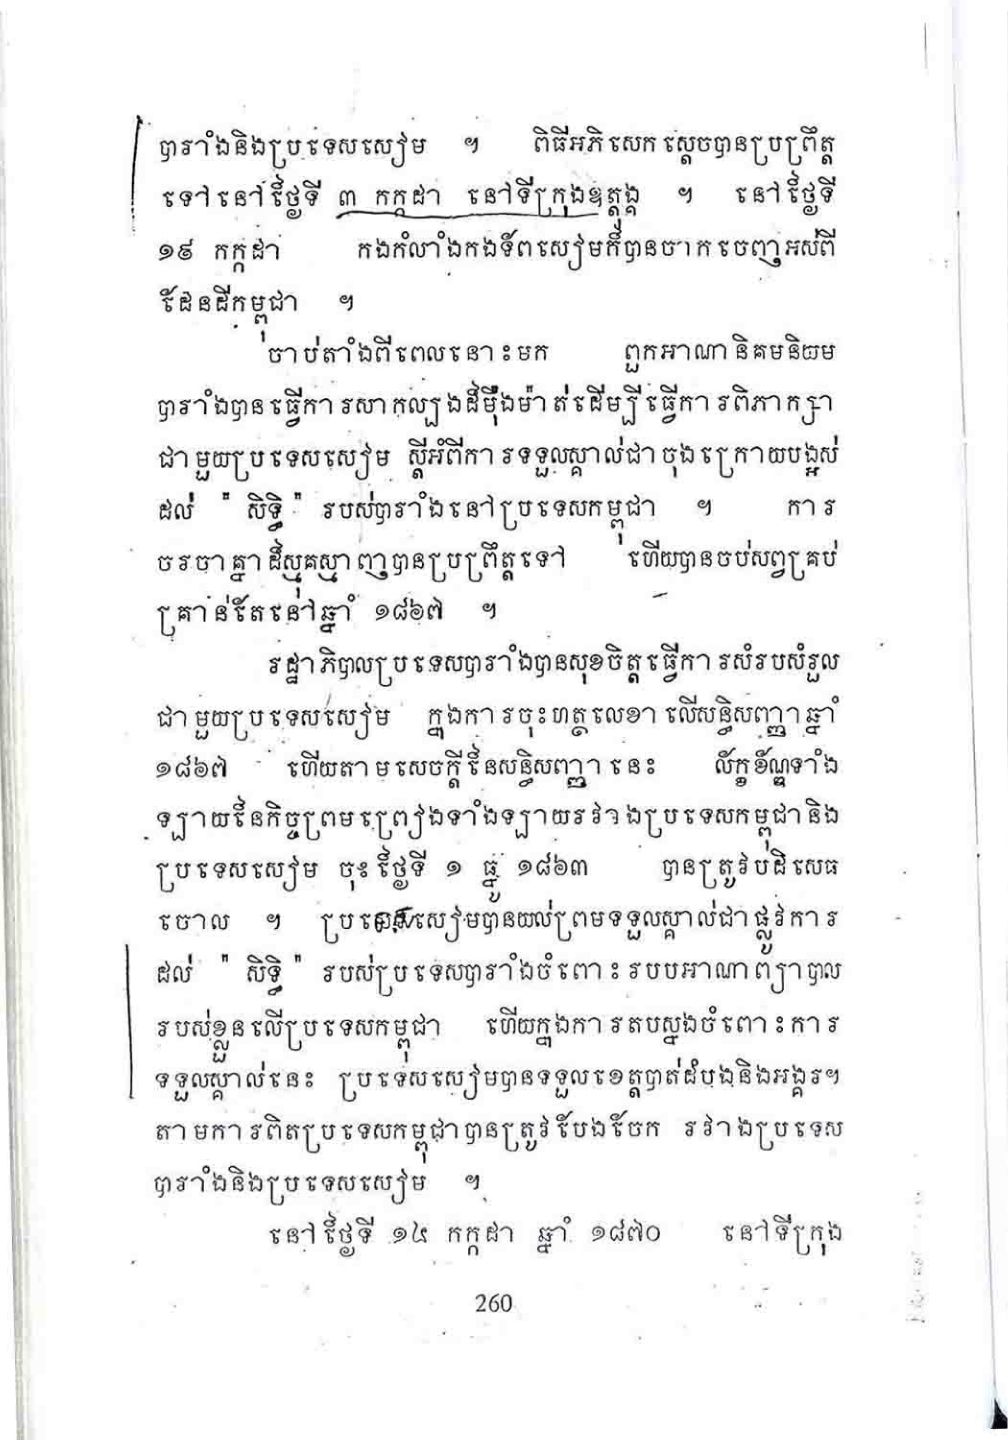 បារាំងនិងប្រទេសសៀម ។ ពិធីអភិសេកស្ដេចបានប្រព្រឹត្ត
ទៅនៅថ្ងៃទី ៣ កក្កដា នៅទីក្រុងឧត្តុង្គ ។ នៅថ្ងៃទី
១៩ កក្កដា កងកំលាំងកងទ័ពសៀមក៏បានចាកចេញអស់ពី
ដែនដីកម្ពុជា ។
ចាប់តាំងពីពេលនោះមក ពួកអាណានិគមនិយម
បារាំងបានធ្វើការសាកល្បងដ៏ម៉ឺងម៉ាត់ដើម្បីធ្វើការពិភាក្សា
ជាមួយប្រទេសសៀម ស្ដីអំពីការទទួលស្គាល់ជាចុងក្រោយបង្អស់
ដល់ " សិទ្ធិ " របស់បារាំងនៅប្រទេសកម្ពុជា ។ ការ
ចរចាគ្នាដ៏ស្មុគស្មាញបានប្រព្រឹត្តទៅ ហើយបានចប់សព្វគ្រប់
គ្រាន់តែនៅឆ្នាំ ១៨៦៧ ។
រដ្ឋាភិបាលប្រទេសបារាំងបានសុខចិត្តធ្វើការសំរបសំរួល
ជាមួយប្រទេសសៀម ក្នុងការចុះហត្ថលេខាលើសន្ធិសញ្ញាឆ្នាំ
១៨៦៧ ហើយតាមសេចក្ដីនៃសន្ធិសញ្ញានេះ ល័ក្ខខ័ណ្ឌទាំង
ឡាយនៃកិច្ចព្រមព្រៀងទាំងឡាយរវាងប្រទេសកម្ពុជានិង
ប្រទេសសៀម ចុះថ្ងៃទី ១ ធ្នូ ១៨៦៣ បានត្រូវបដិសេធ
ចោល ។ ប្រទេសសៀមបានយល់ព្រមទទួលស្គាល់ជាផ្លូវការ
ដល់ " សិទ្ធិ " របស់ប្រទេសបារាំងចំពោះរបបអាណាព្យាបាល
របស់ខ្លួនលើប្រទេសកម្ពុជា ហើយក្នុងការតបស្នងចំពោះការ
ទទួលស្គាល់នេះ ប្រទេសសៀមបានទទួលខេត្តបាត់ដំបងនិងអង្គរ។
តាមការពិតប្រទេសកម្ពុជាបានត្រូវបែងចែក រវាងប្រទេស
បារាំងនិងប្រទេសសៀម ។
នៅថ្ងៃទី ១៥ កក្កដា ឆ្នាំ ១៨៧០ នៅទីក្រុង
260